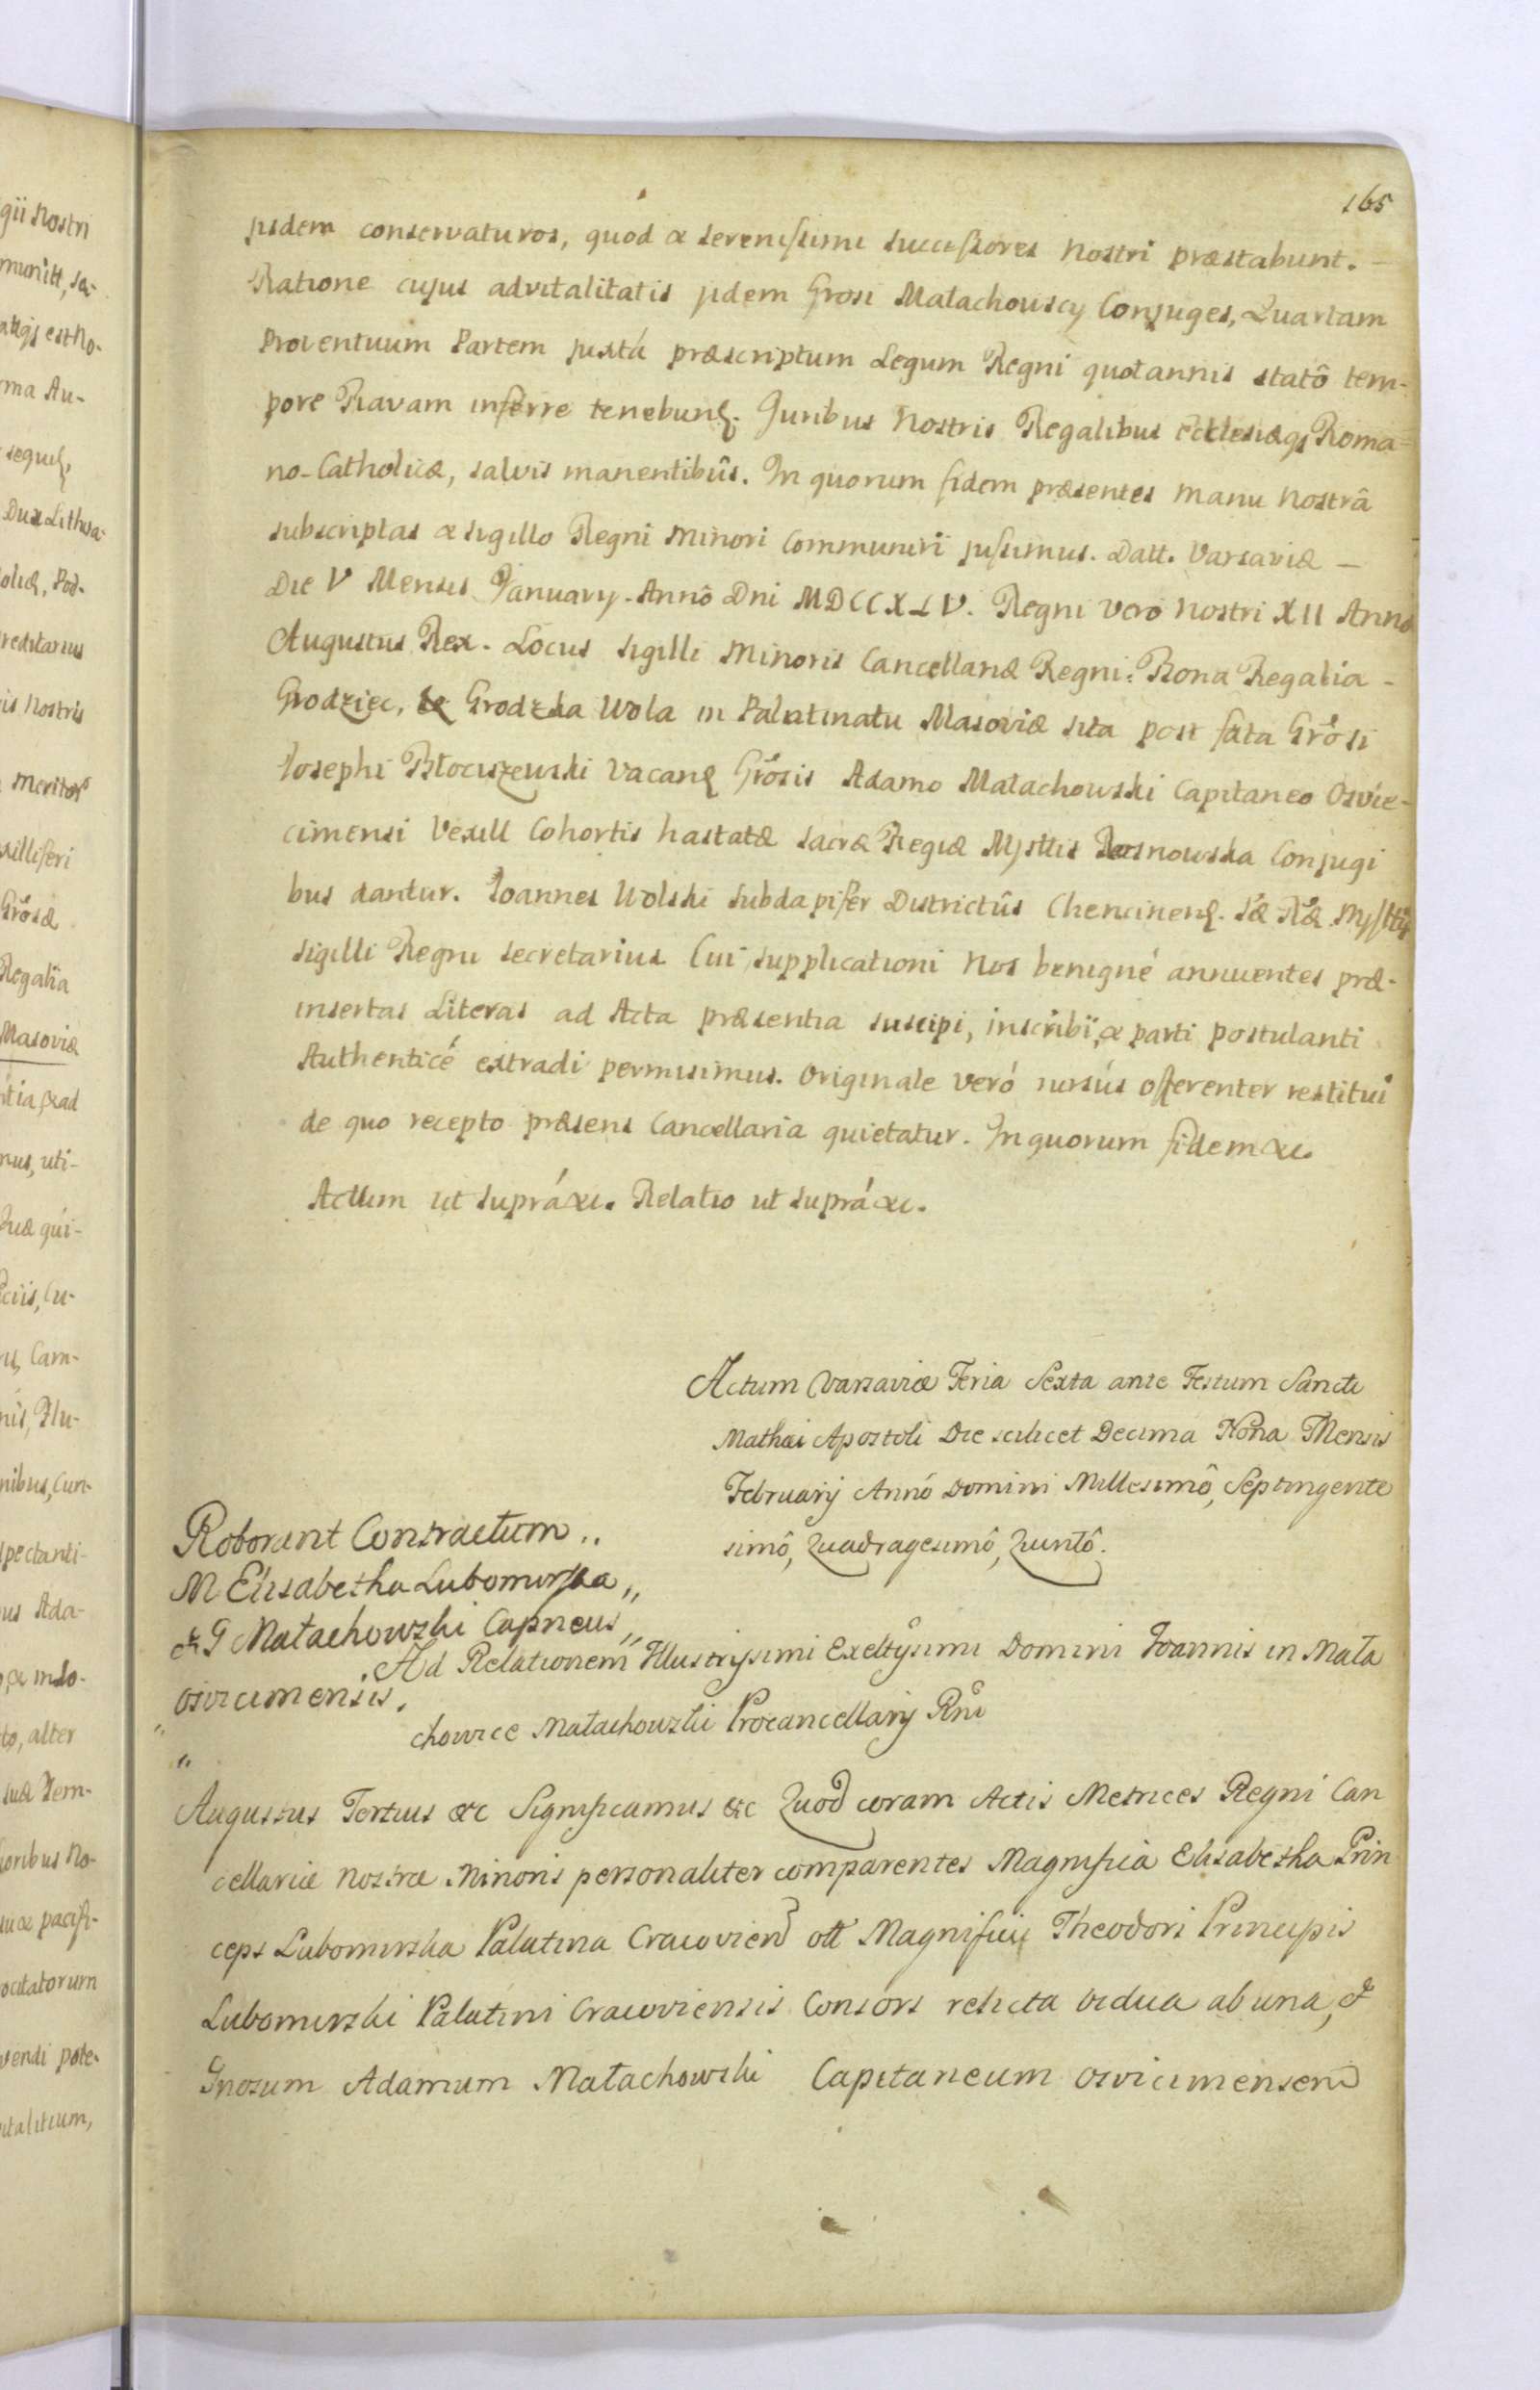 165
jisdem conservaturos, quod & serenissimi successores Nostri præstabunt. –
Ratione cujus advitalitatis jidem Grosi Małachowscy Conjuges, Quartam
Proventuum Partem juxtá præscriptum Legum Regni quotannis statô tem-
pore Ravam inferre tenebunt. Juribus Nostris Regalibus Ecclesiæq; Roma=
no-Catholicæ, salvis manentibûs. In quorum fidem præsentes manu Nostrâ
subscriptas & sigillo Regni Minori Communiri jussimus. Datt. Varsaviæ –
Die V Mensis January. Annô Dni MDCCXLV. Regni Vero Nostri XII Anno
Augustus Rex. Locus sigilli Minoris Cancellariæ Regni: Bona Regalia –
Grodziec, & Grodzka Wola in Palatinatu Masoviæ sita post fata Grosi
Josephi Błociszewski Vacan Grosis Adamo Małachowski Capitaneo Osvie-
cimensi Vexill Cohortis hastatæ Sacræ Regiæ Mjsttis Rosnowska Conjugi
bus dantur. Joannes Wolski Subdapifer Districtûs Chencinen. Sæ Ræ Mjsttis
sigilli Regni secretarius Cui supplicationi Nos benigné annuentes præ-
insertas Literas ad Acta præsentia suscipi, inscribi, & parti postulanti
Authenticé extradi permisimus. Originale veró rursús offerenter restitui
de quo recepto præsens Cancellaria quietatur. In quorum fidem &c.
Actum ut suprá &c. Relatio ut suprá &c.
Actum Varsaviæ Feria Sexta ante Festum Sancti
Mathæi Apostoli Die scilicet Decima Nona Mensis
February Annó Domini Millesimô, Septingente
simô, Quadragesimô, Quintô.
Roborant Contractum..
M Elisabetha Lubomirska,,
& G Małachowski Capneus,,
osvicimensis.
Ad Relationem Illustrissimi Exclttssimi Domini Joannis in Mała
chowice Małachowski Procancellarij Rni
Augustus Tertius &c Significamus &c Quod coram Actis Metrices Regni Can
cellariæ Nostræ Minoris personaliter comparentes Magnifica Elisabetha Prin
ceps Lubomirska Palatina Cracovien olt Magnificij Theodori Principis
Lubomirski Palatini Cracoviensis Consors relicta vidua ab una, &
Gnosum Adamum Małachowski Capitaneum osvicimensem